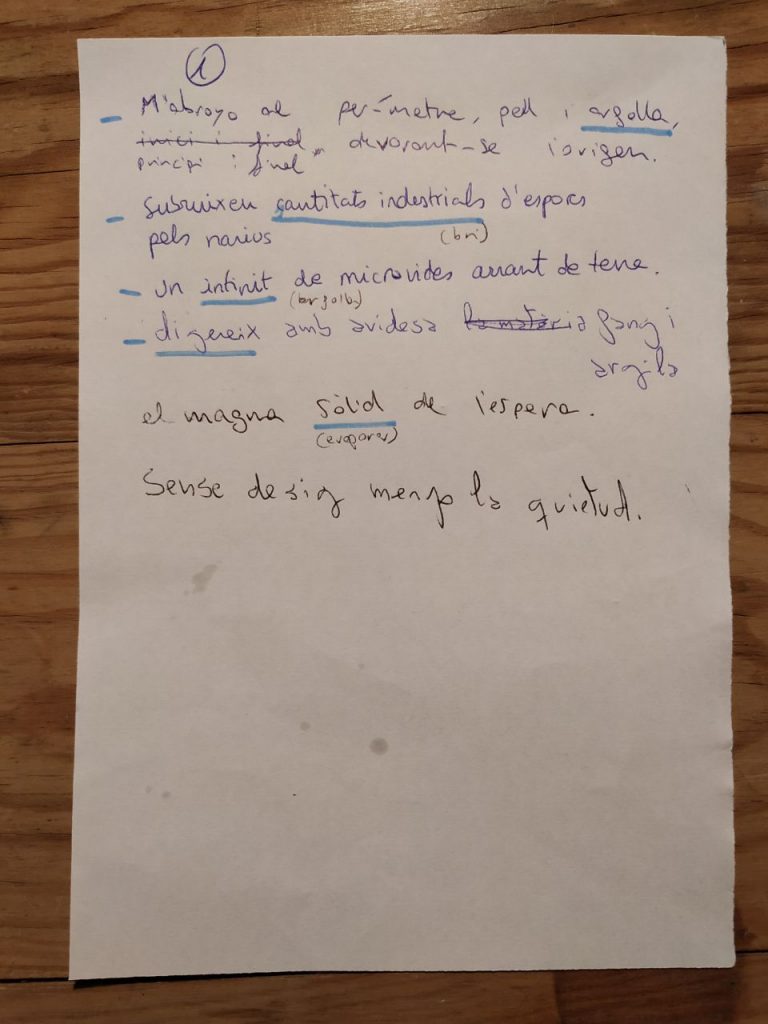 1
- M'abrogo al perímetre, pell i argolla,
inici i final, devorant-se l'origen.
principi i final
- Subsuixen quantitats industrials d'espores
pels narius (bri)
- un infinit de microvides arrant de terra.
(borgolls)
- digereix amb avidesa la matèria fang i
argila
el magma sòlid de l'espera.
(evaporar)
Sense desig menjo la quietud.